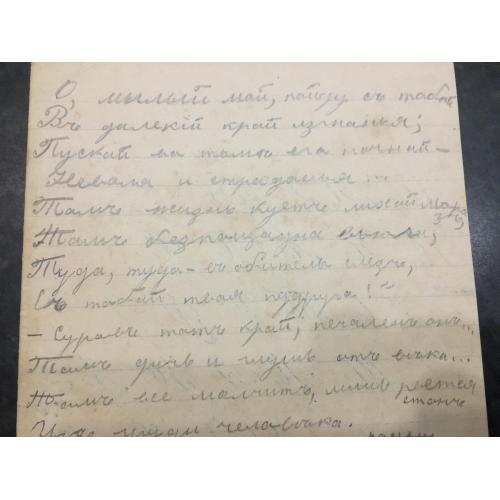 О, милый мой, пойду съ тобой
Въ далекій край изгнанья;
Пускай за тьмою его ночной –
Неволя и страданья...
Тамъ жизнь куетъ лихой морозъ,
Тамъ безпощадна вьюга,
Туда, туда – въ обитель слезъ,
Съ тобой твоя подруга!"
– Суровъ тотъ край, печаленъ онъ...
Тамъ дичь и глушь отъ вѣка...
Тамъ все молчитъ, лишь
стонъ
человѣка.